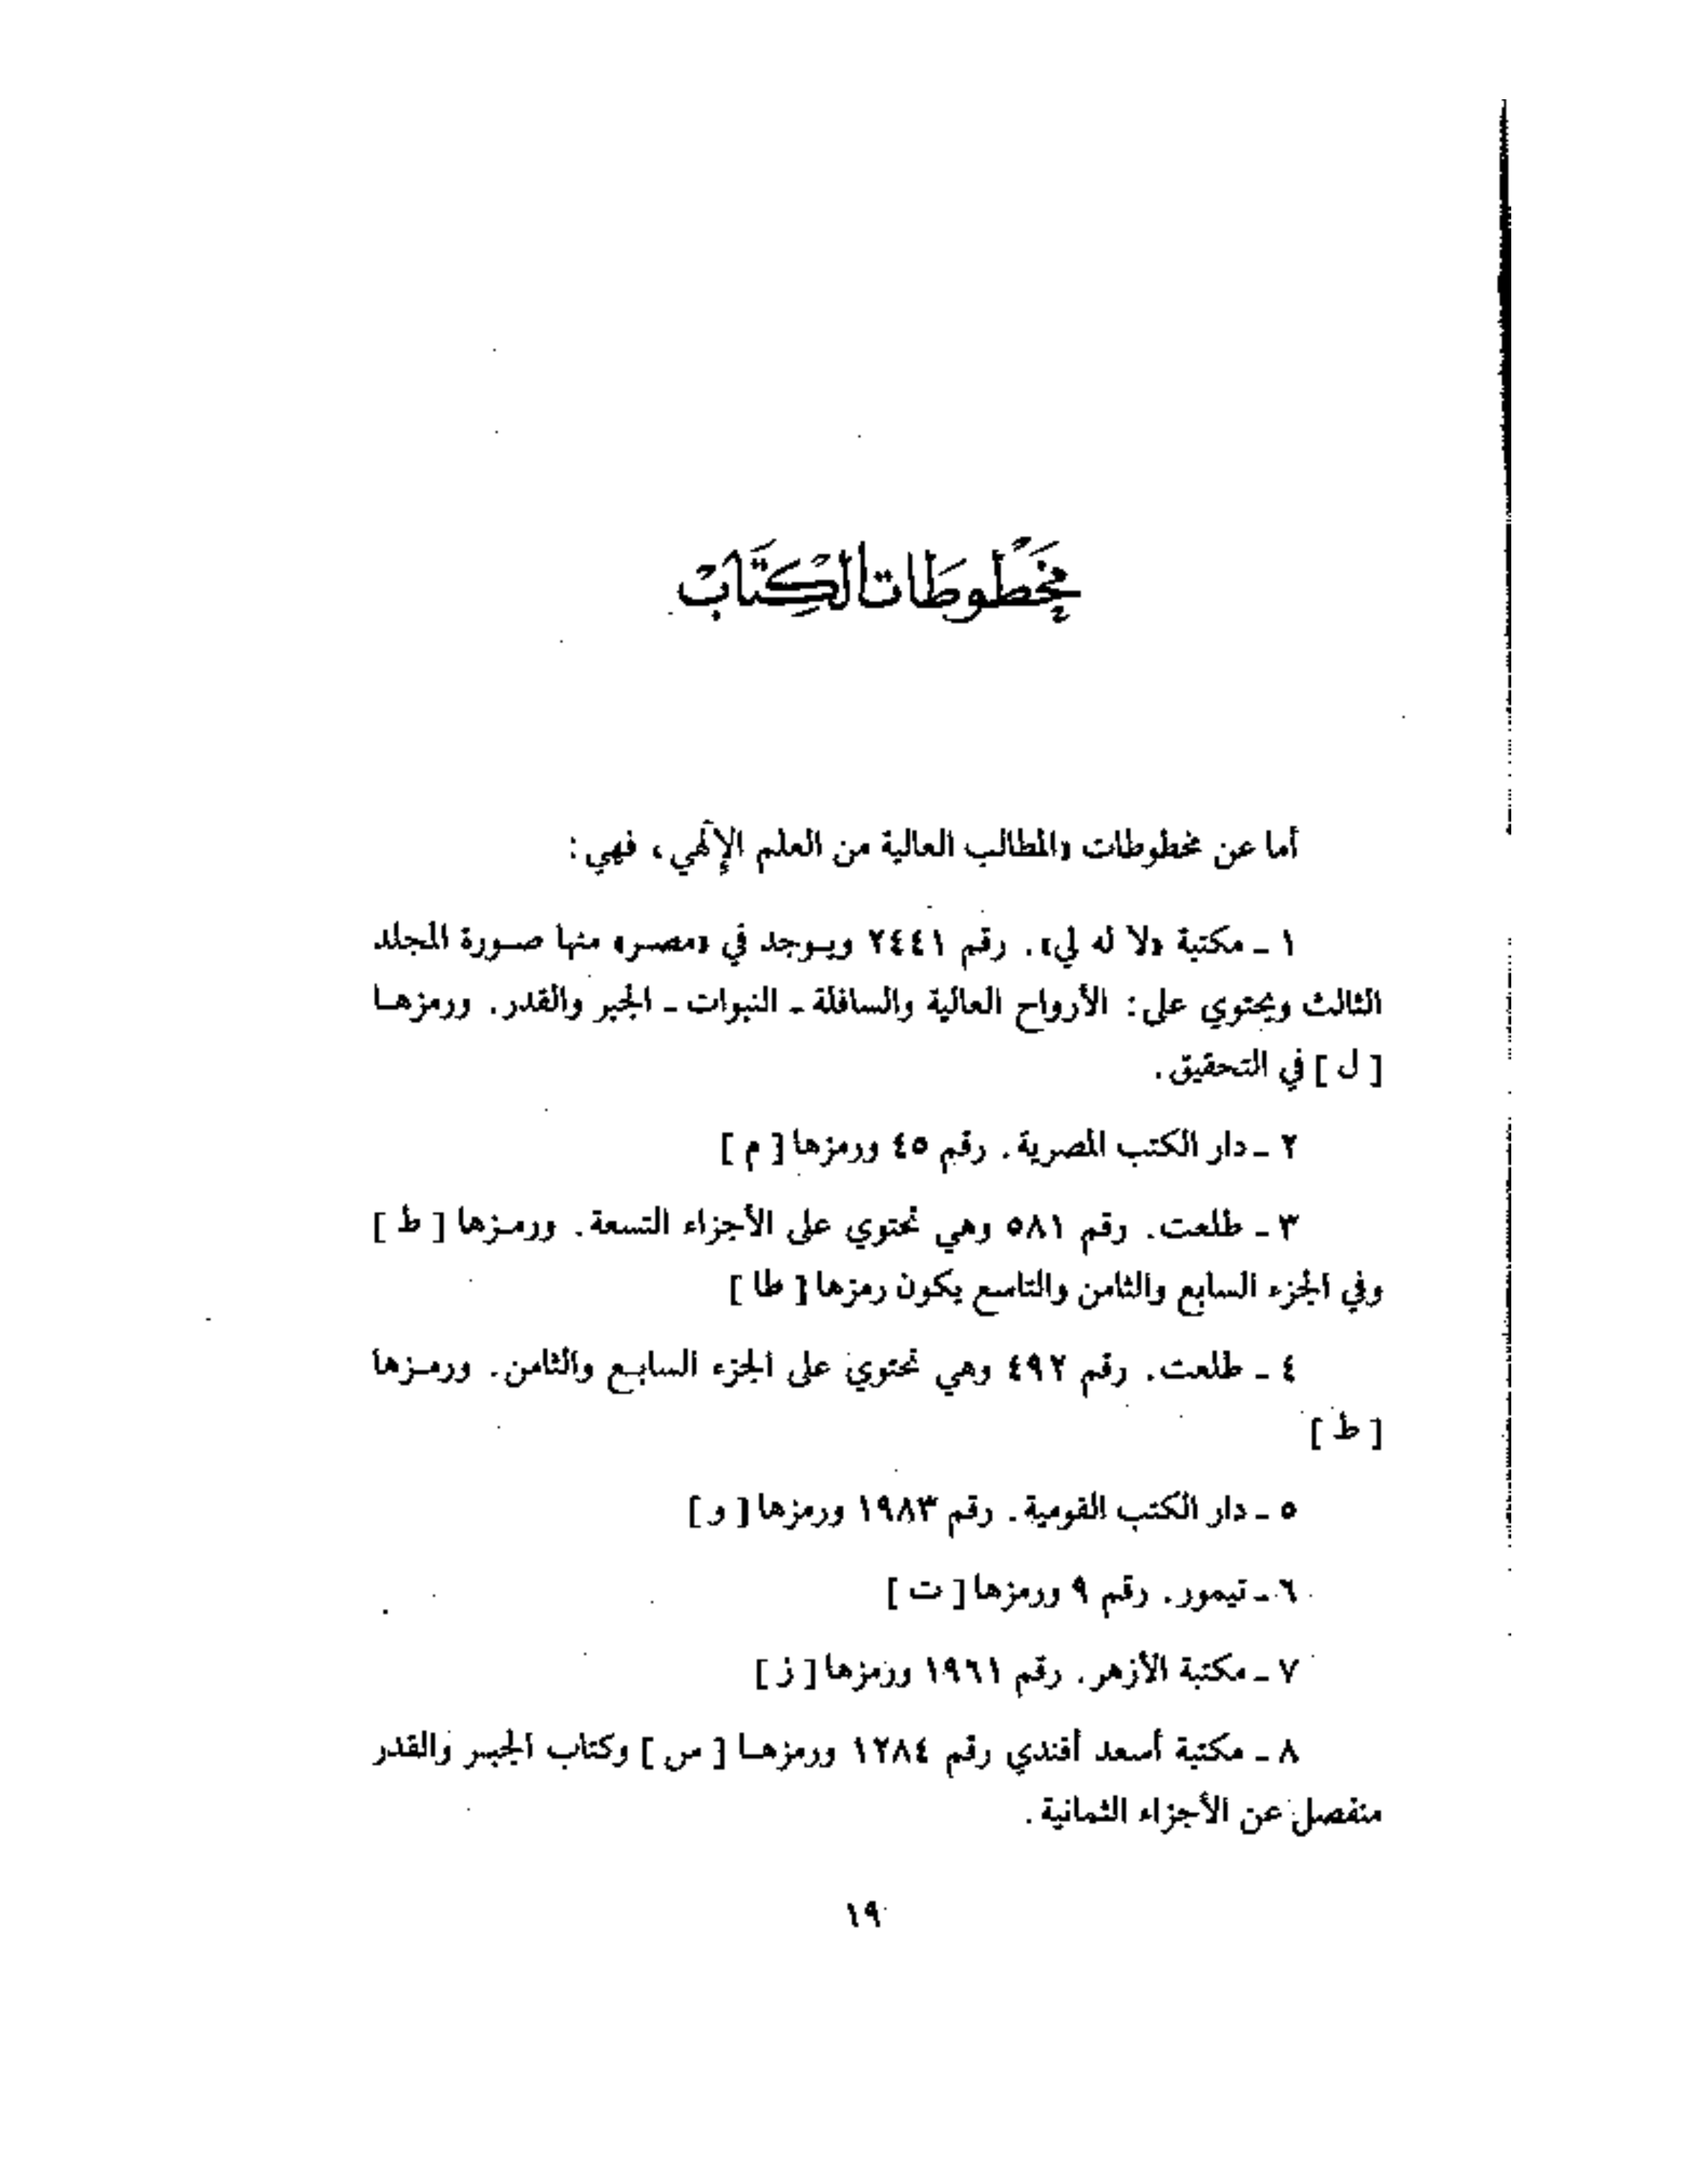 مخطوطات الكتاب
أما عن مخطوطات «المطالب العالية من العلم الإلهي ، فهي :
١ ـ مكتبة «لا له لي». رقم ٢٤٤١ ويوجد في «مصر» منها صورة المجلد
الثالث ويحتوي على : الأرواح العالية والسافلة ـ النبوات ـ الجبر والقدر. ورمزها
[ ل ] في التحقيق.
٢ ـ دار الكتب المصرية. رقم ٤٥ ورمزها [ م ]
٣ ـ طلعت. رقم ٥٨١ وهي تحتوي على الأجزاء التسعة. ورمزها [ ط ]
وفي الجزء السابع والثامن والتاسع يكون رمزها [ طا ]
٤ ـ طلعت. رقم ٤٩٢ وهي تحتوي على الجزء السابع والثامن. ورمزها
[ ط ]
٥ ـ دار الكتب القومية. رقم ١٩٨٣ ورمزها [ و ]
٦ ـ تيمور. رقم ٩ ورمزها [ ت ]
٧ ـ مكتبة الأزهر. رقم ١٩٦١ ورمزها [ ز ]
٨ ـ مكتبة أسعد أفندي رقم ١٢٨٤ ورمزها [ س ] وكتاب الجبر والقدر
منفصل عن الأجزاء الثمانية.
١٩